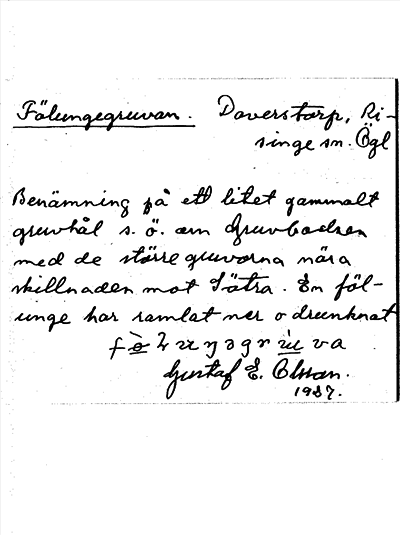 Fölungegruvan. Doverstorp, Ri-
singe sn. Ögl
Benämning på ett litet gammalt
gruvhål s.ö. om Gruvbodsen
med de större gruvorna nära
skillnaden mot Sätra. En föl-
unge har ramlat ner o drunknat
Gustaf E. Olsson.
1937.